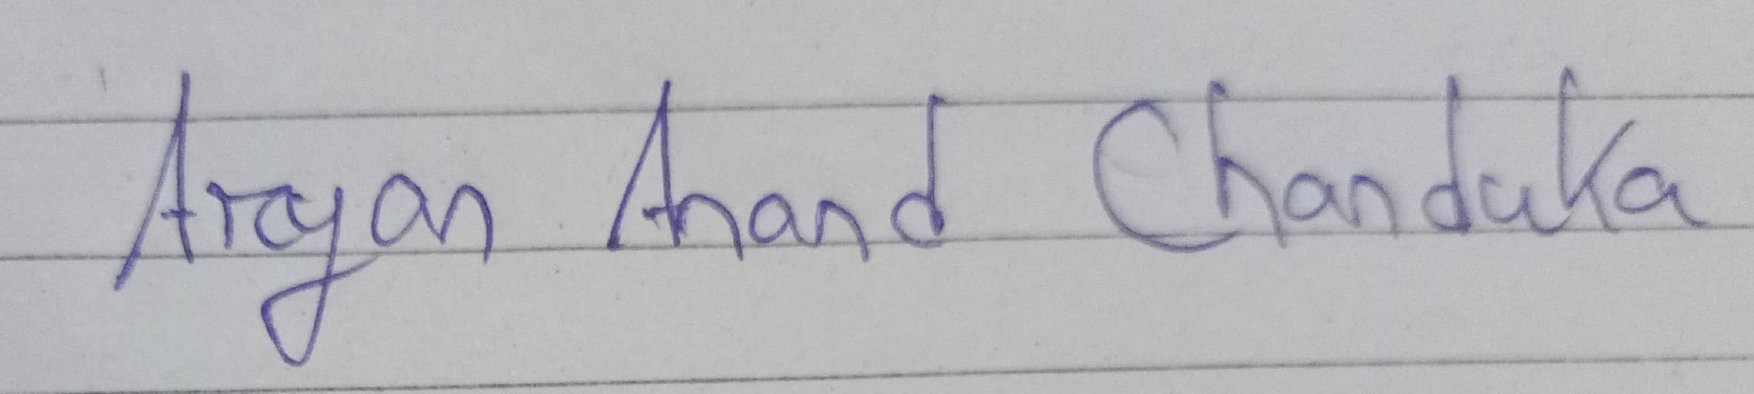 Aryan Anand Chanduka